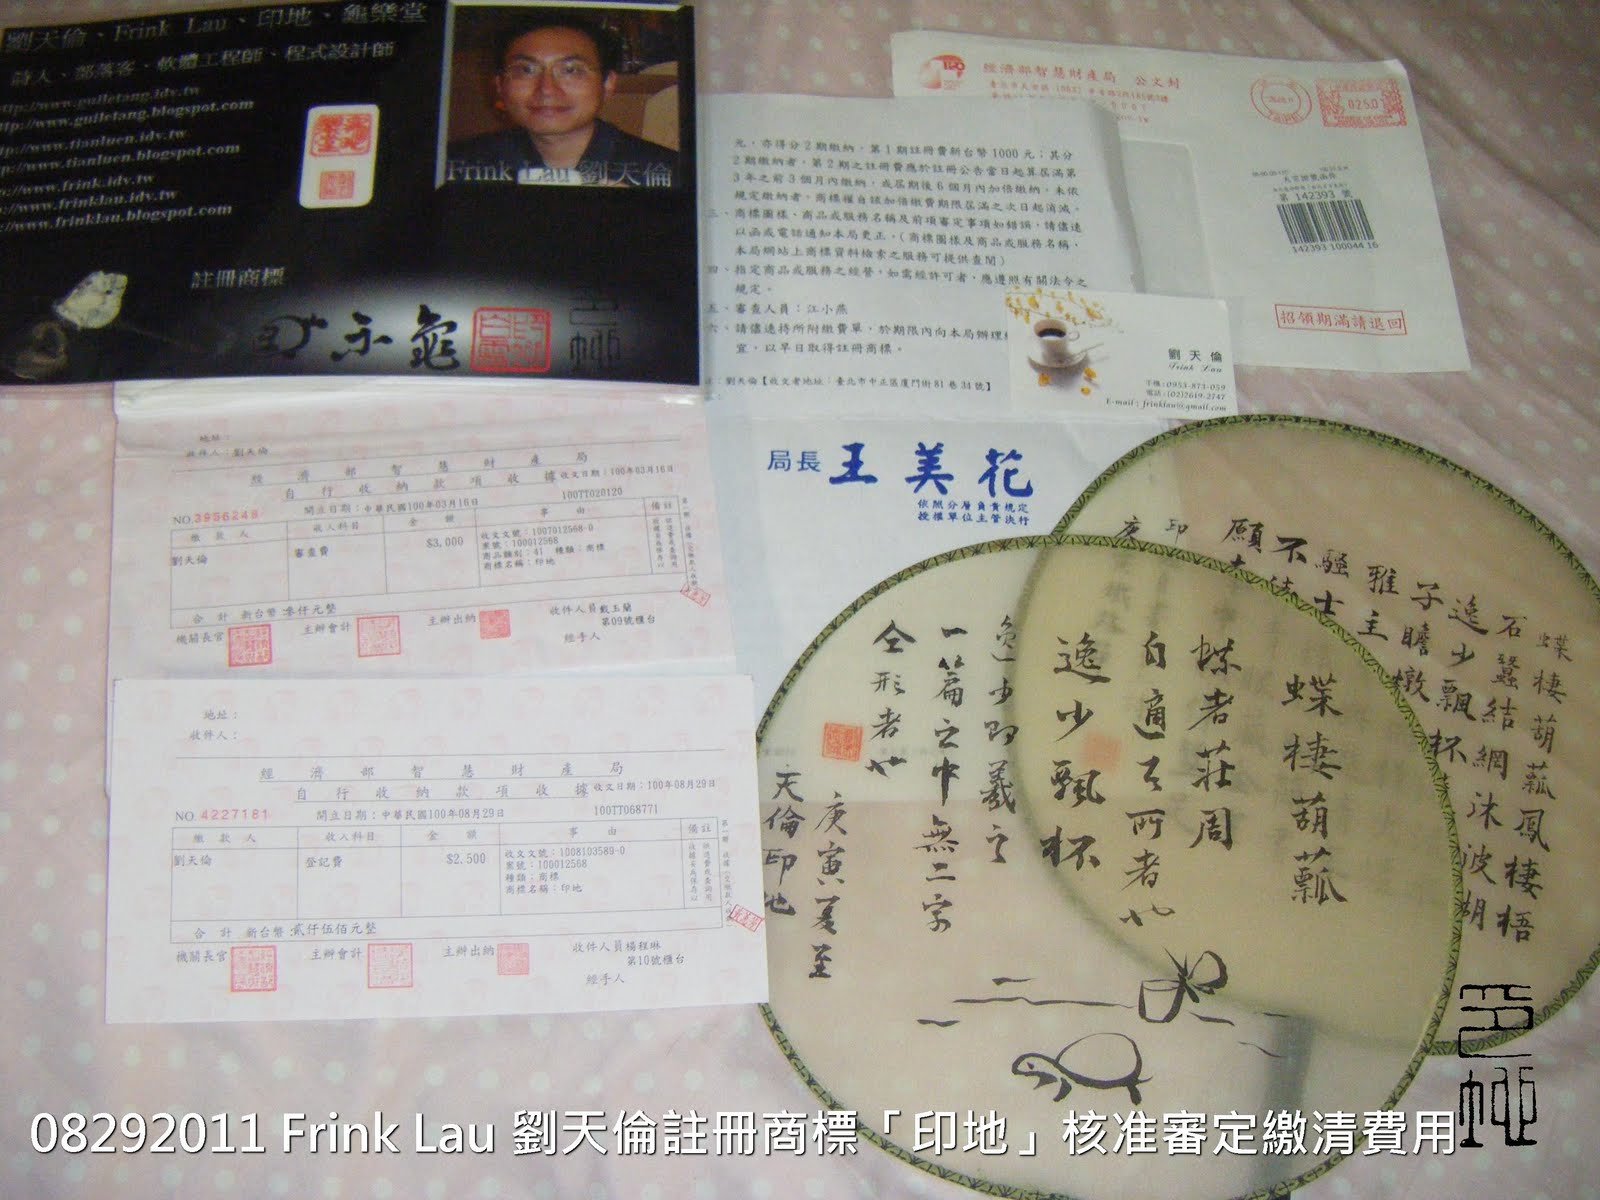 劉天倫、Frink Lau、印地、龜樂堂
詩人、部落客、軟體工程師、程式設計師
http://www.guiletang.idv.tw
http://www.guiletang.blogspot.com
http://www.tianluen.idv.tw
http://www.tianluen.blogspot.com
http://www.frink.idv.tw
http://www.frinklau.idv.tw
http://www.frinklau.blogspot.com
Frink Lau 劉天倫
註冊商標
經濟部智慧財產局 公文封
0250
第 142393 號
142393 100044 16
招領期滿請退回
元，亦得分2期繳納，第1期註冊費新台幣1000元；其分
2期繳納者，第2期之註冊費應於註冊公告當日起算屆滿第
3年之前3個月內繳納，或屆期後6個月內加倍繳納，未依
規定繳納者，商標權自該加倍繳費期限屆滿之次日起消滅。
三、商標圖樣、商品或服務名稱及前項審定事項如錯誤，請儘速
以函或電話通知本局更正。（商標圖樣及商品或服務名稱，
本局網站上商標資料檢索之服務可提供查閱）
四、指定商品或服務之經營，如需經許可者，應遵照有關法令之
規定。
五、審查人員：江小燕
六、請儘速持所附繳費單，於期限內向本局辦理
宜，以早日取得註冊商標。
：劉天倫【收文者地址：臺北市中正區廈門街81巷34號】
劉天倫
Frink Lau
手機:0953-873-059
電話:(02)2619-2747
E-mail: frinklau@gmail.com
局長 王美花
依照分層負責規定
授權單位主管執行
地址：
收件人：劉天倫
經濟部智慧財產局
自行收納款項收據 收文日期：100年03月16日
NO.3956248 開立日期：中華民國100年03月16日 100TT020120
繳款人 收入科目 金額 事由 備註
劉天倫 審查費 $3,000 收文文號：1007012568-0
案號：100012568
商品類別：41 種類：商標
商標名稱：印地
合計 新台幣 參仟元整
機關長官 主辦會計 主辦出納 收件人員 戴玉蘭
第09號櫃台
經手人
地址：
收件人：
經濟部智慧財產局
自行收納款項收據 收文日期：100年08月29日
NO.4227181 開立日期：中華民國100年08月29日 100TT068771
繳款人 收入科目 金額 事由 備註
劉天倫 登記費 $2,500 收文文號：1008103589-0
案號：100012568
種類：商標
商標名稱：印地
合計 新台幣 貳仟伍佰元整
機關長官 主辦會計 主辦出納 收件人員 楊程琳
第10號櫃台
經手人
蝶棲葫瓢鳳棲梧
石蠶結網沐波湖
逸少飄杯
子瞻墩
雅主
騷士
不
願
印
蝶棲葫瓢
蝶者莊周
自適
所者也
逸少飄杯
逸少即羲之
一篇之中無二字
仝形者也
庚寅夏至
天倫印地
08292011 Frink Lau 劉天倫註冊商標「印地」核准審定繳清費用